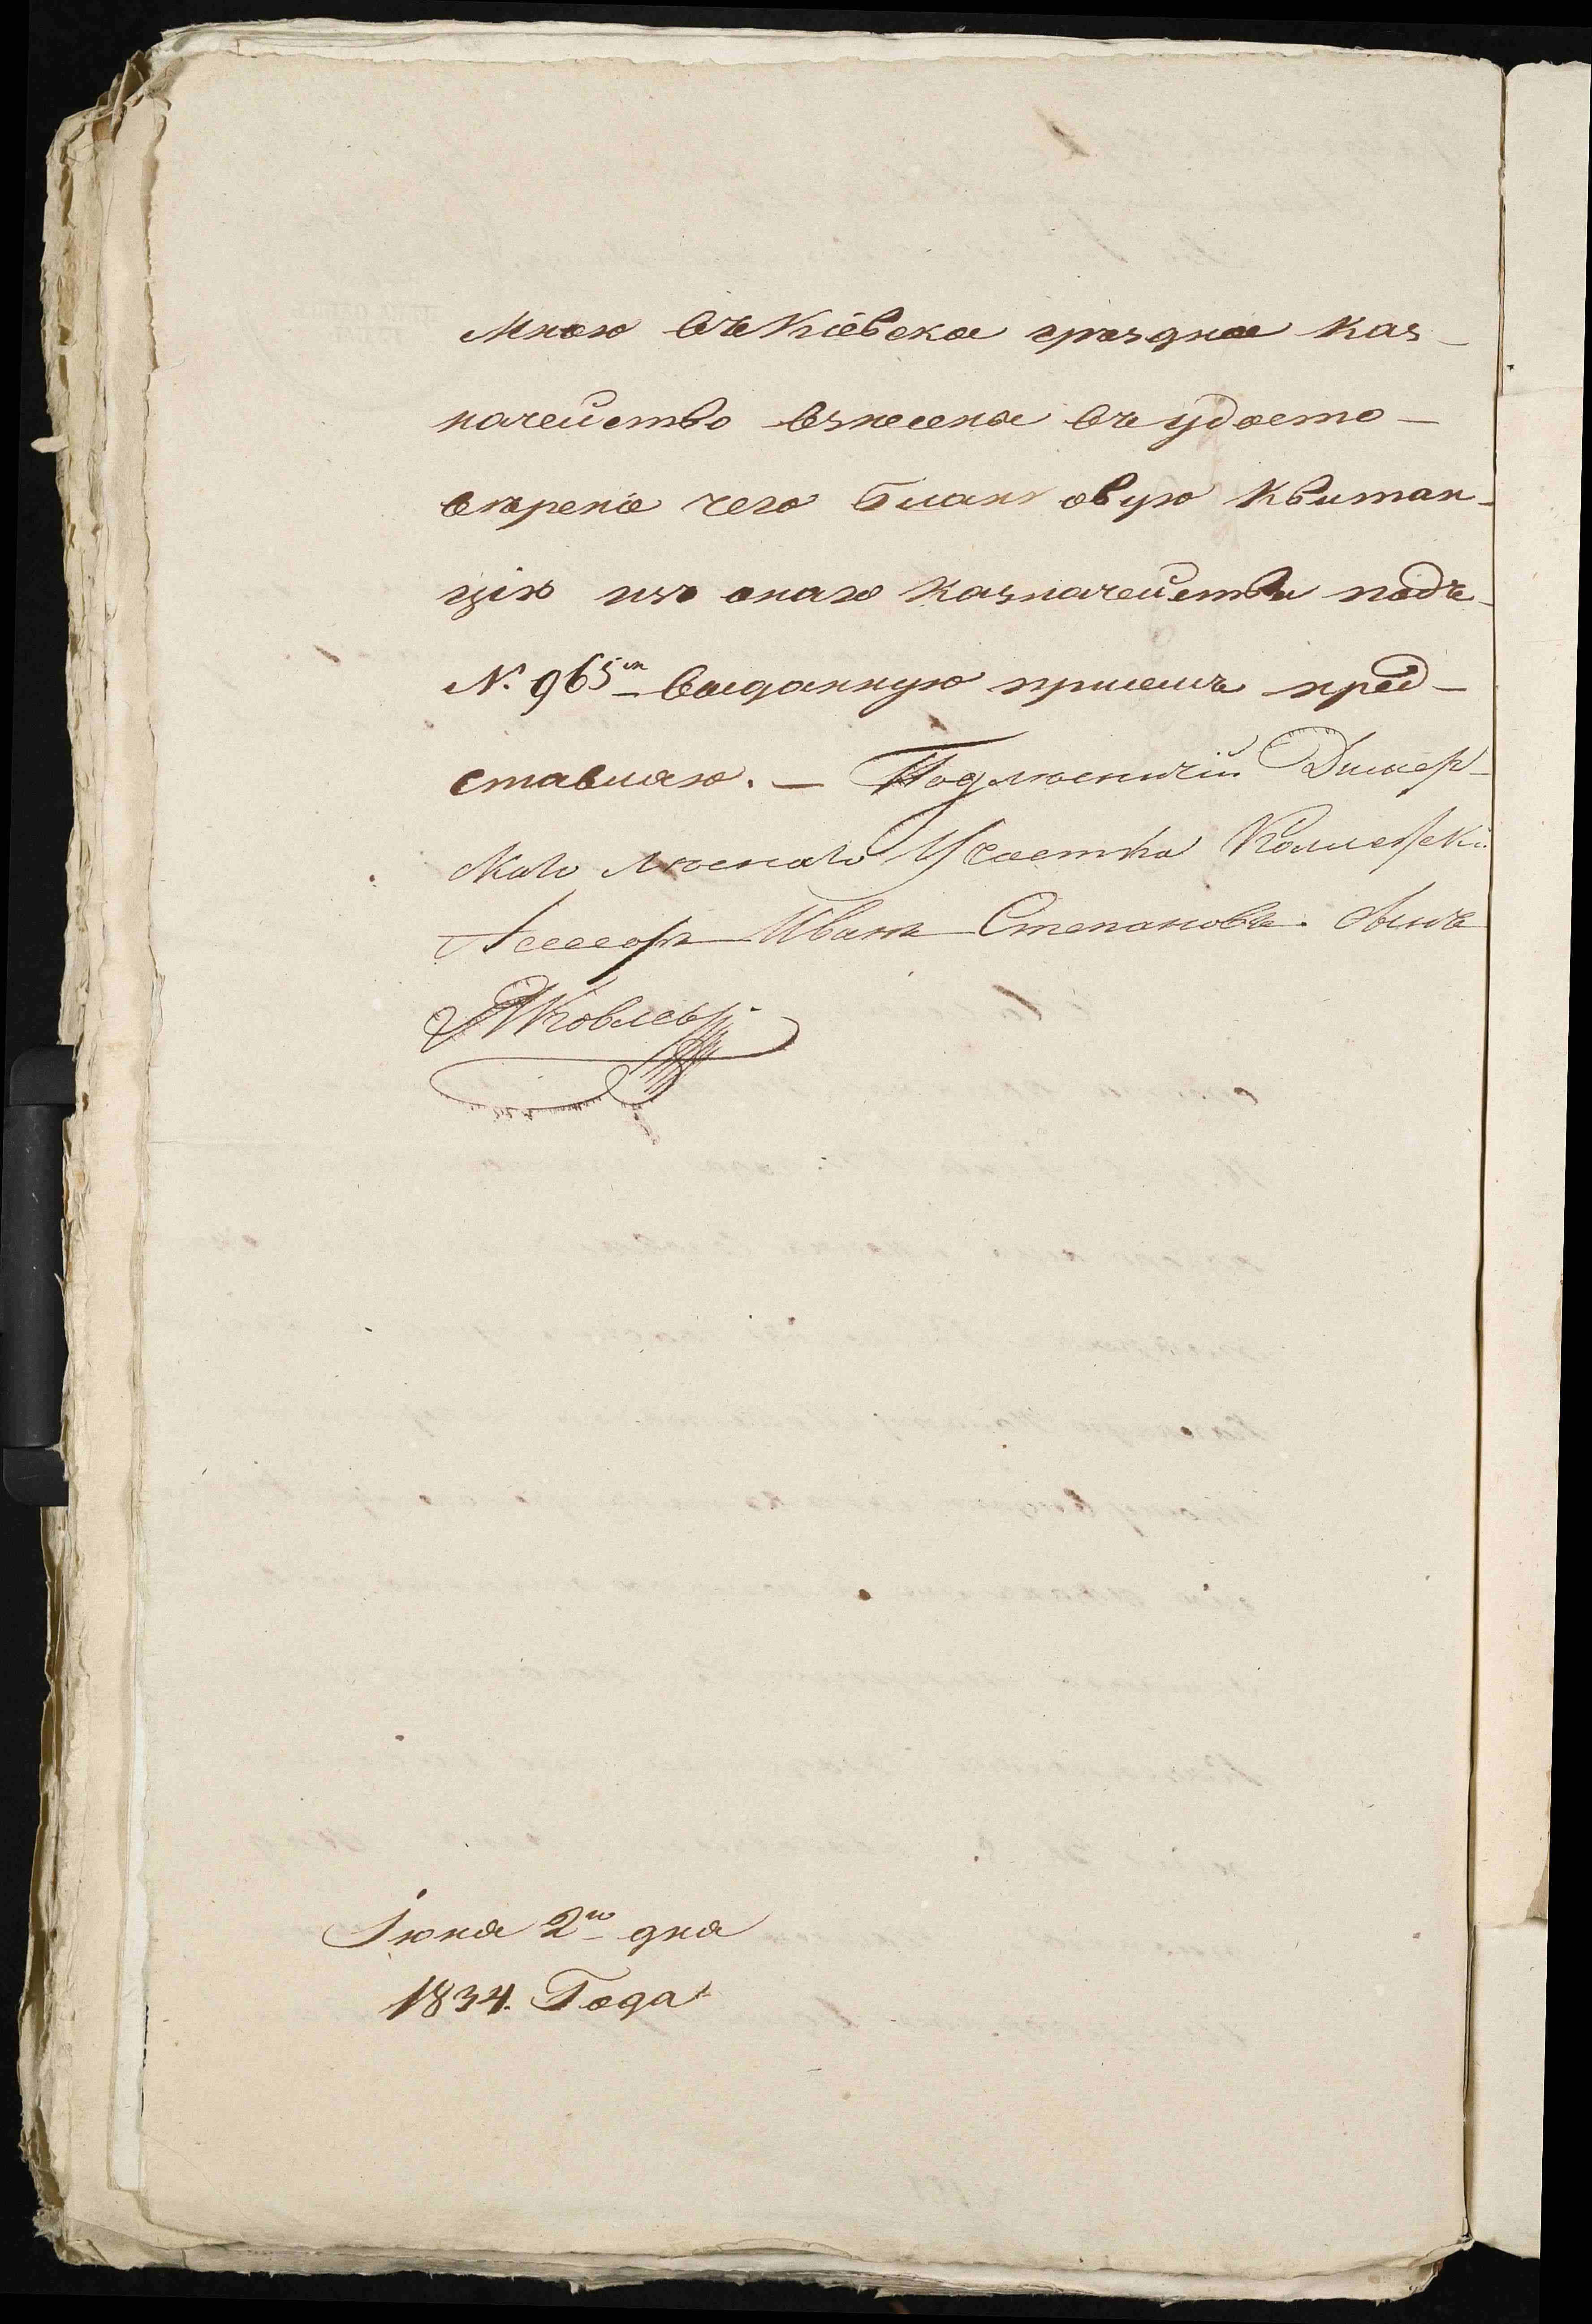 Мною въ Кіевское уѣздное каз-
начейство взнесены въ удосто-
вѣреніе чего бланковую Квитан-
цію изъ онаго казначейства подъ
N. 965м выданную присемъ пред-
ставляю. — Подлѣсничій Дымер-
скаго лѣснаго Участка Коллежскій
Ассесоръ Иванъ Степановъ Сынъ
Яковлевъ
Іюня 2го дня
1834. Года